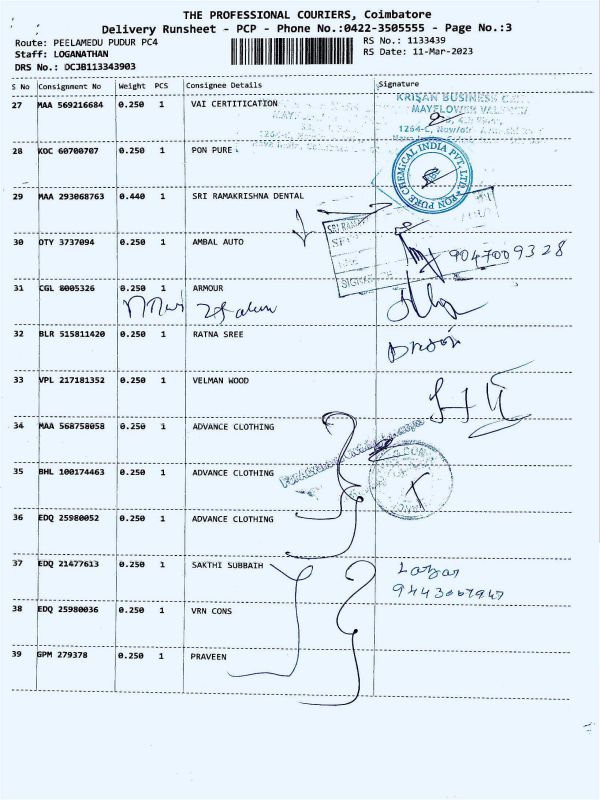 THE PROFESSIONAL COURIERS, Coimbatore
Delivery Runsheet - PCP - Phone No.:0422-3505555 - Page No.:3
Route: PEELAMEDU PUDUR PC4 RS No.: 1133439
Staff: LOGANATHAN RS Date: 11-Mar-2023
DRS No.: DCJB113343903
S No Consignment No Weight PCS Consignee Details Signature
27 MAA 569216684 0.250 1 VAI CERTITICATION
KRISAN BUSINESS
MAYFLOWER
1264-C,
28 KOC 60700707 0.250 1 PON PURE
PON PURE CHEMICAL INDIA PVT. LTD.
29 MAA 293068763 0.440 1 SRI RAMAKRISHNA DENTAL
SRI
30 DTY 3737094 0.250 1 AMBAL AUTO
9047009328
31 CGL 8005326 0.250 1 ARMOUR
32 BLR 515811420 0.250 1 RATNA SREE
33 VPL 217181352 0.250 1 VELMAN WOOD
34 MAA 568758058 0.250 1 ADVANCE CLOTHING
35 BHL 100174463 0.250 1 ADVANCE CLOTHING
36 EDQ 25980052 0.250 1 ADVANCE CLOTHING
37 EDQ 21477613 0.250 1 SAKTHI SUBBAIH
38 EDQ 25980036 0.250 1 VRN CONS
39 GPM 279378 0.250 1 PRAVEEN